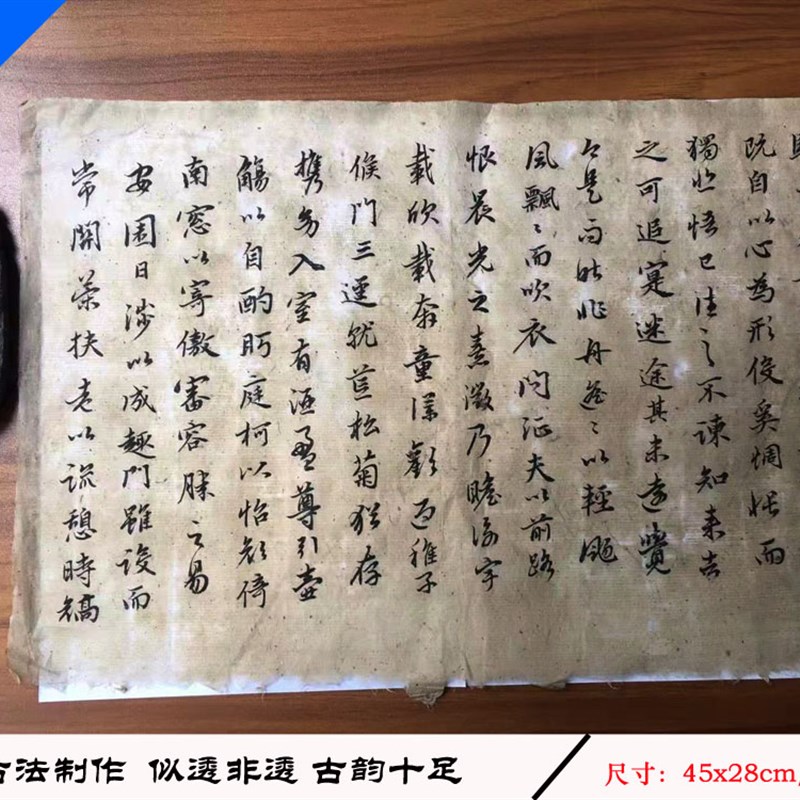 既自以心為形役奚惆悵而
獨悲悟已往之不諫知来者
之可追寔迷途其未遠覺
今是而昨非舟遙〻以輕颺
風飄〻而吹衣問征夫以前路
恨晨光之熹微乃瞻衡宇
載欣載奔童僕歡迎稚子
候門三逕就荒松菊猶存
携幼入室有酒盈尊引壺
觴以自酌眄庭柯以怡顏倚
南窓以寄傲審容膝之易
安園日涉以成趣門雖設而
常關策扶老以流憩時矯
古法制作 似透非透 古韵十足
尺寸：45x28cm